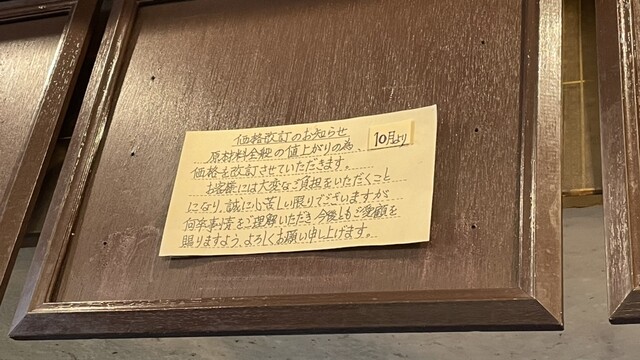 価格改訂のお知らせ
10月より
原材料全般の値上がりの為、
価格を改訂させていただきます。
お客様には大変なご負担をいただくこと
になり、誠に心苦しい限りでございますが
何卒事情をご理解いただき、今後ともご愛顧を
賜りますよう、よろしくお願い申し上げます。